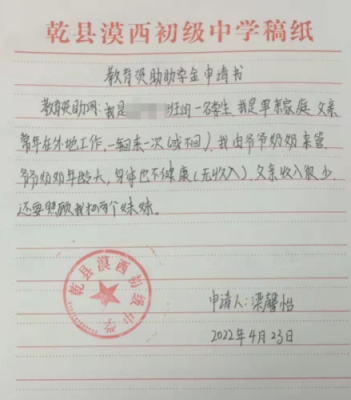 乾县漠西初级中学稿纸
教育资助助学金申请书
教育资助网:我是 班的一名学生,我是单亲家庭,父亲
常年在外地工作,一年回来一次(或不回),我由爷爷奶奶来管,
爷爷奶奶年龄大,身体也不健康(无收入),父亲收入很少,
还要照顾我和两个妹妹。
乾县漠西初级中学
申请人:梁馨怡
2022年4月23日